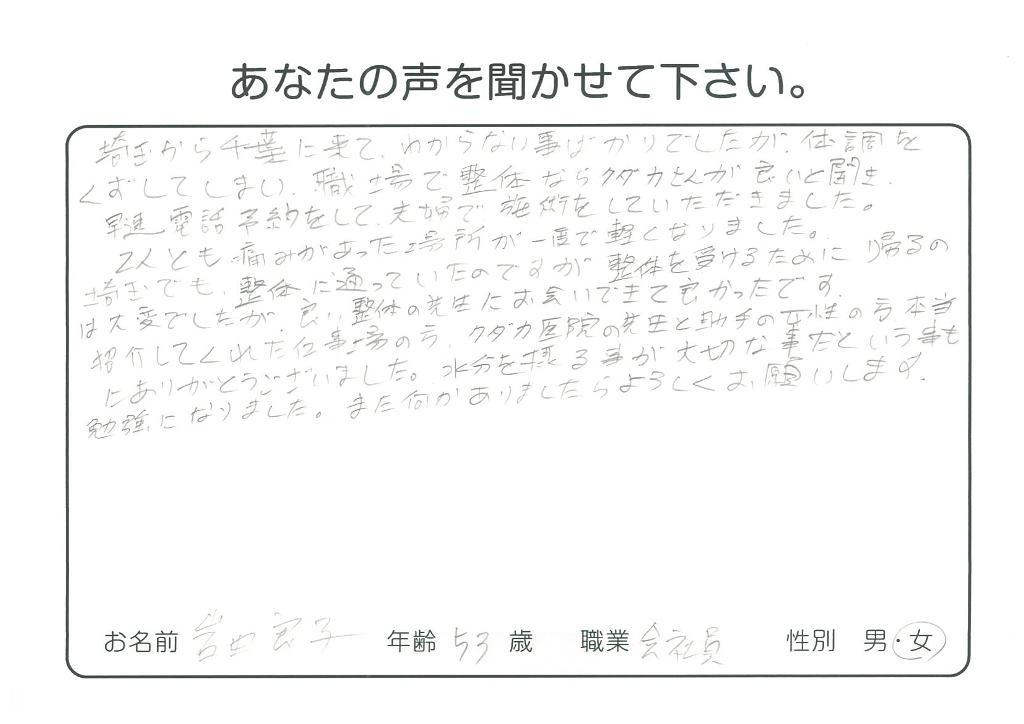 あなたの声を聞かせて下さい。
埼玉から千葉に来て、わからない事ばかりでしたが、体調を
くずしてしまい、職場で整体ならクダカさんが良いと聞き、
早速電話予約をして、夫婦で施術をしていただきました。
2人とも痛みがあった場所が一度で軽くなりました。
埼玉でも、整体に通っていたのですが整体を受けるために帰るの
は大変でしたが、良い整体の先生にお会いできて良かったです。
紹介してくれた仕事場の方、クダカ医院の先生と助手の女性の方本当
にありがとうございました。水分を摂る事が大切な事だという事も
勉強になりました。また何かありましたらよろしくお願いします。
お名前 良子 年齢 53 歳 職業 会社員 性別 男・女